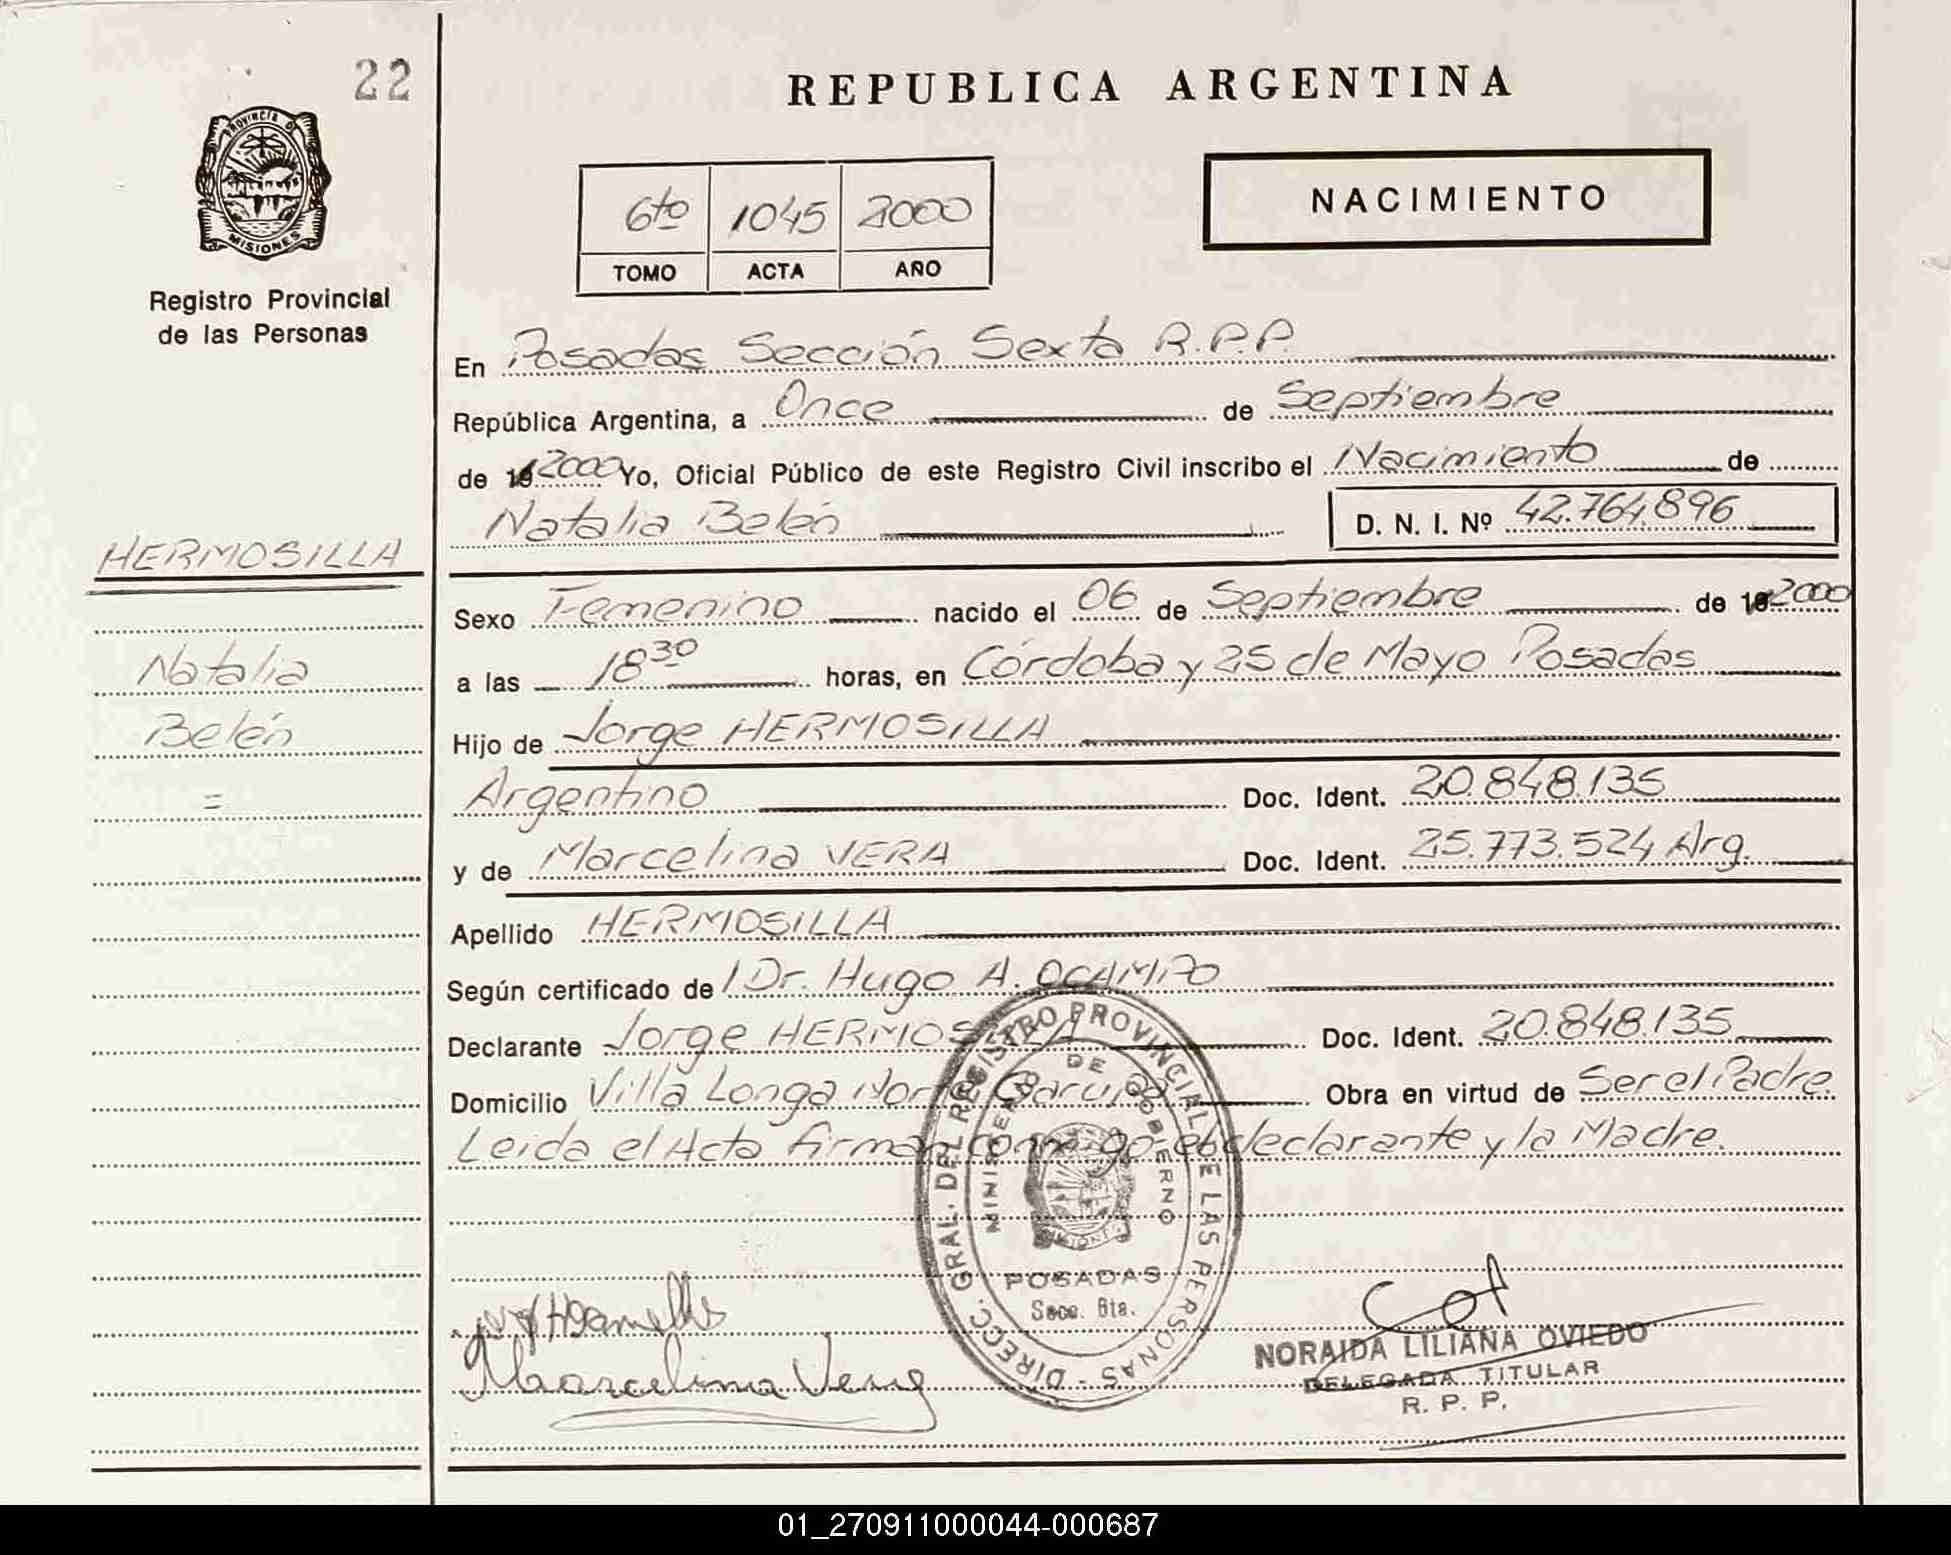 22
PROVINCIA DE
MISIONES
Registro Provincial
de las Personas
HERMOSILLA
Natalia
Belén
=
REPUBLICA ARGENTINA
6to 1045 2000
TOMO ACTA AÑO
NACIMIENTO
En Posadas Sección Sexta R.P.P.
República Argentina, a Once de Septiembre
de 2000 Yo, Oficial Público de este Registro Civil inscribo el Nacimiento de
Natalia Belén D. N. I. Nº 42.764.896
Sexo Femenino nacido el 06 de Septiembre de 2000
a las 18 30 horas, en Córdoba y 25 de Mayo Posadas
Hijo de Jorge HERMOSILLA
Argentino Doc. Ident. 20.848.135
y de Marcelina VERA Doc. Ident. 25.773.524 Arg.
Apellido HERMOSILLA
Según certificado de Dr. Hugo A. OCAMPO
Declarante Jorge HERMOSILLA Doc. Ident. 20.848.135
Domicilio Villa Longa Norte Garupá Obra en virtud de Ser el Padre.
Leida el Acta firman conmigo el declarante y la Madre.
DIRECC. GRAL. DEL REGISTRO PROVINCIAL DE LAS PERSONAS -
MINISTERIO DE GOBIERNO
POSADAS
Secc. 6ta.
Marcelina Vera
NORAIDA LILIANA OVIEDO
DELEGADA TITULAR
R. P. P.
01_270911000044-000687